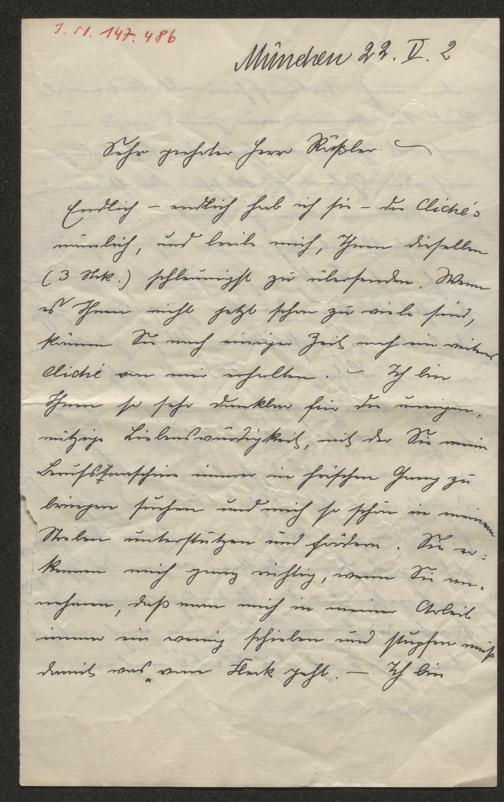 J. N. 147.486
München 22. V. 2
Sehr geehrter Herr Rößler
Endlich – endlich hab ich sie – die Cliché's
nämlich, und beeile mich, Ihnen dieselben
(3 Stk.) schleunigst zu übersenden. Wenn
es Ihnen nicht jetzt schon zu viele sind,
können Sie nach einiger Zeit noch ein weiteres
Cliché von mir erhalten. – Ich bin
Ihnen so sehr dankbar für die uneigen-
nützige Liebenswürdigkeit, mit der Sie mein
immer in frischen Gang zu
bringen suchen und mich so schön in meinem
Streben unterstützen und fördern. Sie er-
kennen mich ganz richtig, wenn Sie an-
nehmen, daß man mich in meiner Arbeit
immer ein wenig schieben und stupfen muß
damit was „vom Fleck geht. – Ich bin